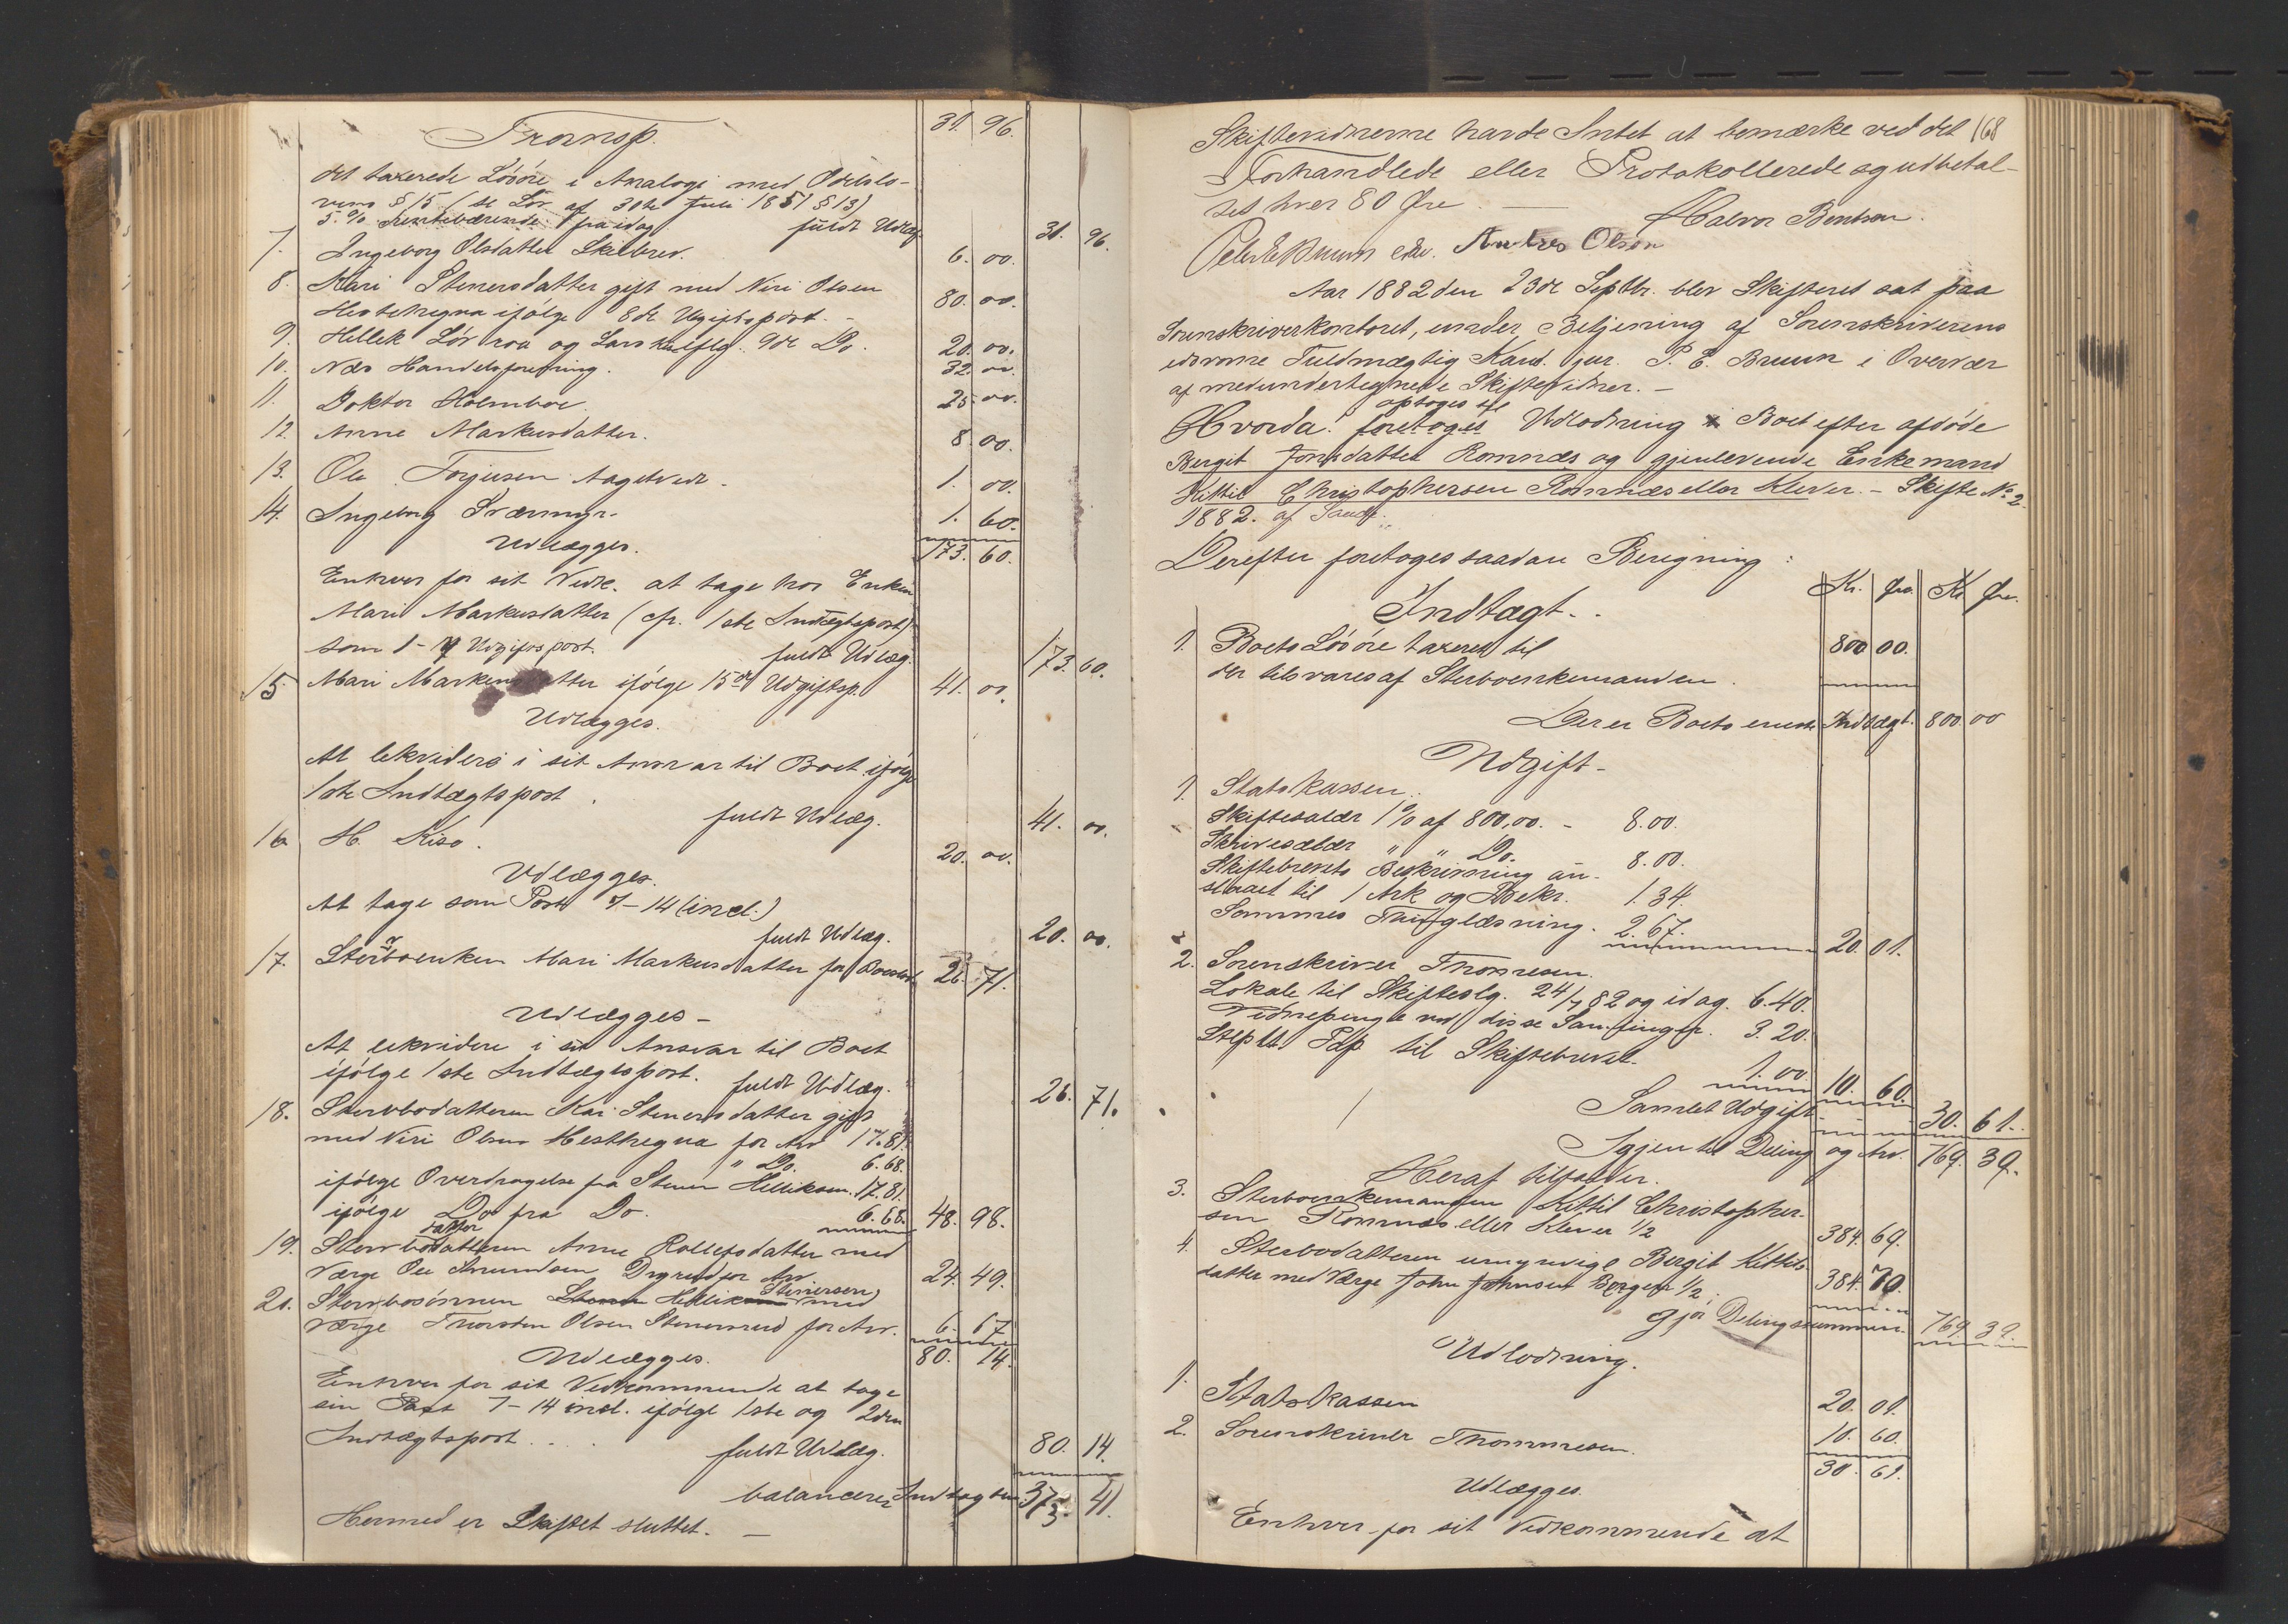 Transp. 31. 96.
det taxerede Løsøre i Analogi med Odelslo-
vens § 15 (se Lov af 30te Juli 1851 § 13)
5 % Rentebærende fra idag fuldt Udlæg 31. 96.
7. Ingeborg Olsdatter Skilbred. 6. 00.
8. Kari Stenersdatter gift med Niri Olsen 80. 00.
Hesthegna ifølge 8de Udgiftspost. -
9. Hellik og Lars 9de Do. 20. 00.
10. Næs Handelsforening. 32. 00.
11. Doktor Holmboe. 25. 00.
12. Anne Markusdatter. 8. 00.
13. Ole Torjusen Aagetvedt. 1. 00.
14. Ingeborg Tværmyr. 1. 60.
Udlægges. 173. 60.
Enhver for sit Vedk. at tage hos Enken
Mari Markusdatter (cfr. 1ste Indtægtspost)
som 1-7 Udgiftspost. fuldt Udlæg. 173. 60.
15. Mari Markusdatter ifølge 15de Udgiftsp. 41. 00.
Udlægges.
At likvidere i sit Ansvar til Boet ifølge
1ste Indtægtspost. fuldt Udlæg. 41. 00.
16. H. Kiso. 20. 00.
Udlægges.
At tage som Post 7-14 (incl.)
fuldt Udlæg. 20. 00.
17. Sterboenken Mari Markusdatter for Boeslod 26. 71.
Udlægges -
At likvidere i sit Ansvar til Boet
ifølge 1ste Indtægtspost. fuldt Udlæg. 26. 71.
18. Stervbodatteren Kari Stenersdatter gift
med Niri Olsen Hesthegna for Arv 17.81.
" Do. 6.68.
ifølge Overdragelse fra Stener Helliksen. 17.81.
ifølge Do fra Do. 6.68. 48. 98.
19. Stervbodatterdatteren Anne Rollefsdatter med
Værge Ole Amundsen Dygrud for Arv 24. 49.
20. Stervbosønnen Stener Hellik Stenersen med
Værge Thorsten Olsen Stenerud for Arv. 6. 67.
Udlægges. 80. 14.
Enhver for sit Vedkommende at tage
sin Post 7-14 incl. ifølge 1ste og 2den
Indtægtspost.... fuldt Udlæg. 80. 14.
balancerer Indtægten 373. 41.
Hermed er Skiftet sluttet. -
168
Skiftevidnerne havde Intet at bemærke ved det
Forhandlede eller Protokollerede og udbetal-
tes hver 80 Øre. - Halvor Bentsen.
Peter E Bruun edsv. Antres Olsen
Aar 1882 den 23de Septbr. blev Skifteret sat paa
Sorenskriverkontoret, under Betjening af Sorenskriverens
edsvorne Fuldmægtig Kand. jur. P. E. Bruun i Overvær
af medundertegnede Skiftevidner. -
optoges til
Hvorda: foretoges Udlodning i Boet efter afdøde
Bergit Jonsdatter Romnæs og gjenlevende Enkemand
Kittil Christophersen Romnæs eller Klever. - Skifte No 2
1882. af Saude.
Derefter foretoges saadan Beregning:
Indtægt. Kr. Øre. Kr. Øre.
1. Boets Løsøre taxeret til 800 00.
der tilsvares af Sterboenkemanden.
Der er Boets eneste Indtægt. 800. 00
Udgift -
1. Statskassen.
Skiftesalær 1 % af 800,00. - 8.00.
Skrivesalær " " Do. 8.00.
Skiftebrevets Beskrivning an-
slaaet til 1 Ark og Bekr. 1.34.
Sammes Thinglæsning. 2.67. 20. 01.
2. Sorenskriver Thomesen.
Lokale til Skifteslg. 24/7 82 og idag. 6.40.
Vidnepenge ved disse Samlinger. 3.20.
Stplt. Pap. til Skiftebrevet. 1.00 10. 60.
Samlet Udgift 30. 61.
Igjen til Deling og Arv. 769. 39.
Heraf tilfalder.
3. Sterboenkemanden Kittil Christopher-
sen Romnæs eller Klever 1/2 384. 69.
4. Sterbodatteren umyndige Bergit Kittels-
datter med Værge John Johnsen Borgen 1/2. 384. 70.
Gjør Delingssummen. 769. 39.
Udlodning.
1. Statskassen 20. 01.
2. Sorenskriver Thommesen. 10. 60.
30. 61.
Udlægges.
Enhver for sit Vedkommende at